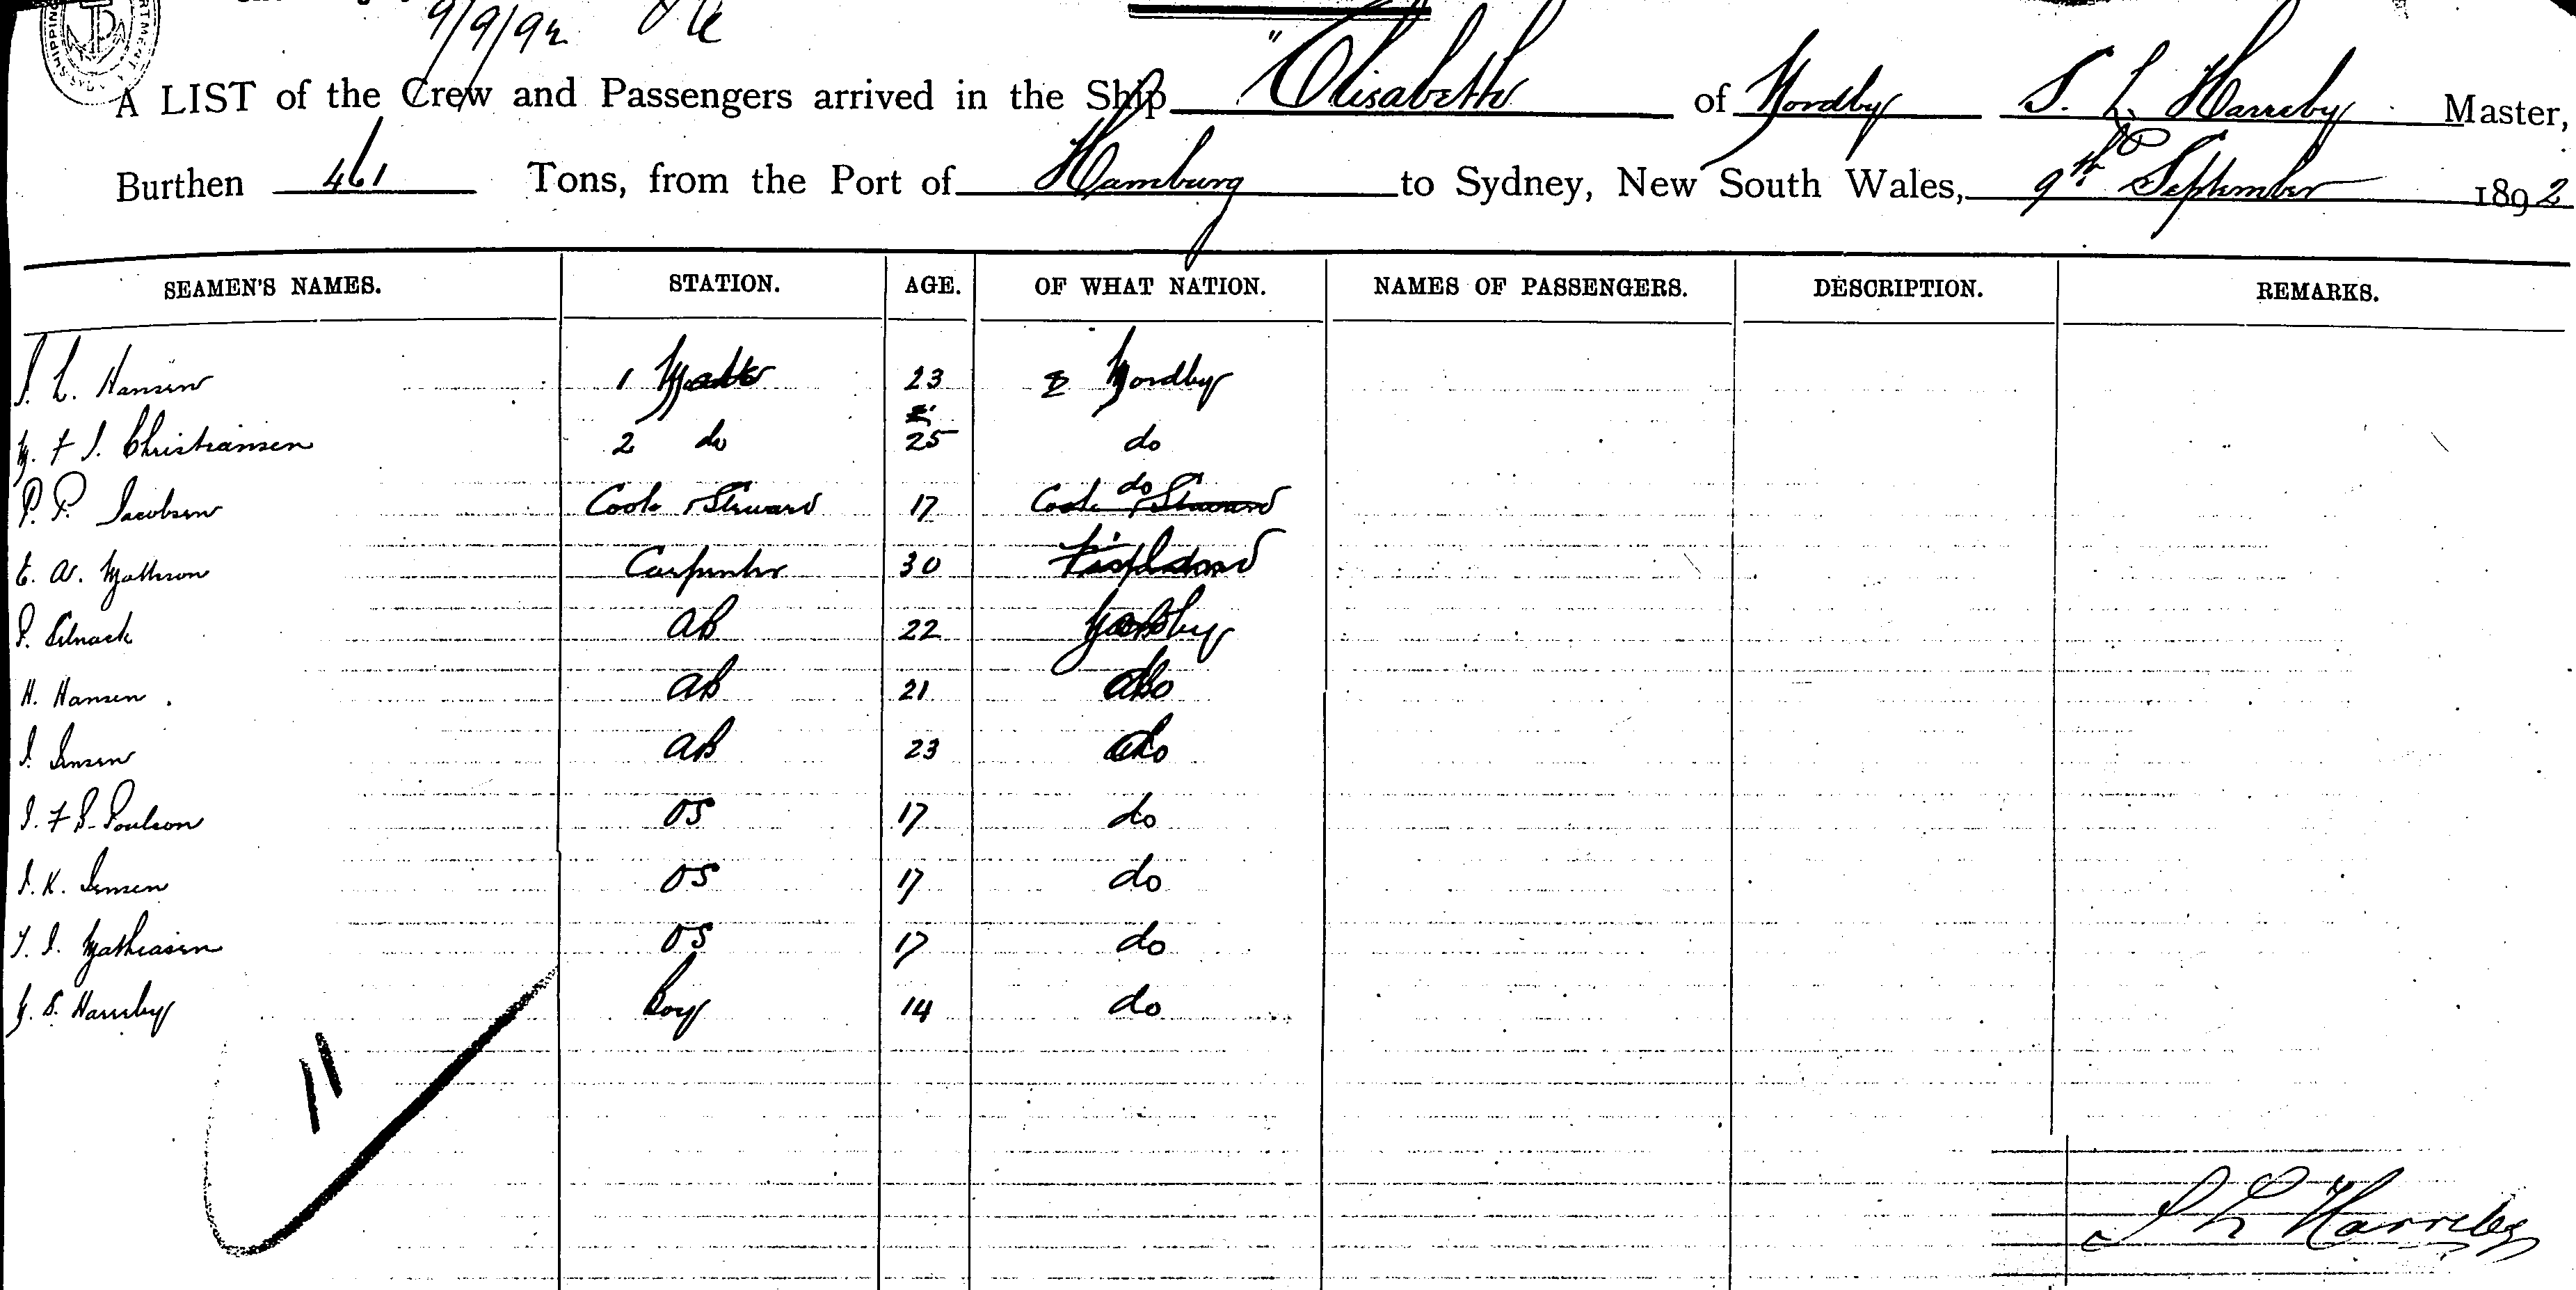 9/9/92
A LIST of the Crew and Passengers arrived in the Ship "Elisabeth of Nordby S. L. Harreby Master,
Burthen 461 Tons, from the Port of Hamburg to Sydney, New South Wales, 9th September 1892
SEAMEN'S NAMES. STATION. AGE. OF WHAT NATION. NAMES OF PASSENGERS. DESCRIPTION. REMARKS.
L. Hansen 1 Mate 23 Nordby
Christiansen 2 do 25 do
P. P. Jacobsen Cook & Steward 17 Cook & Steward do
Carpenter 30
P. AB 22 Nordby
H. Hansen AB 21 do
J. Jensen AB 23 do
J. F. Poulson OS 17 do
J. K. Jensen OS 17 do
Mathiasen OS 17 do
S. Harreby Boy 14 do
11
S L Harreby